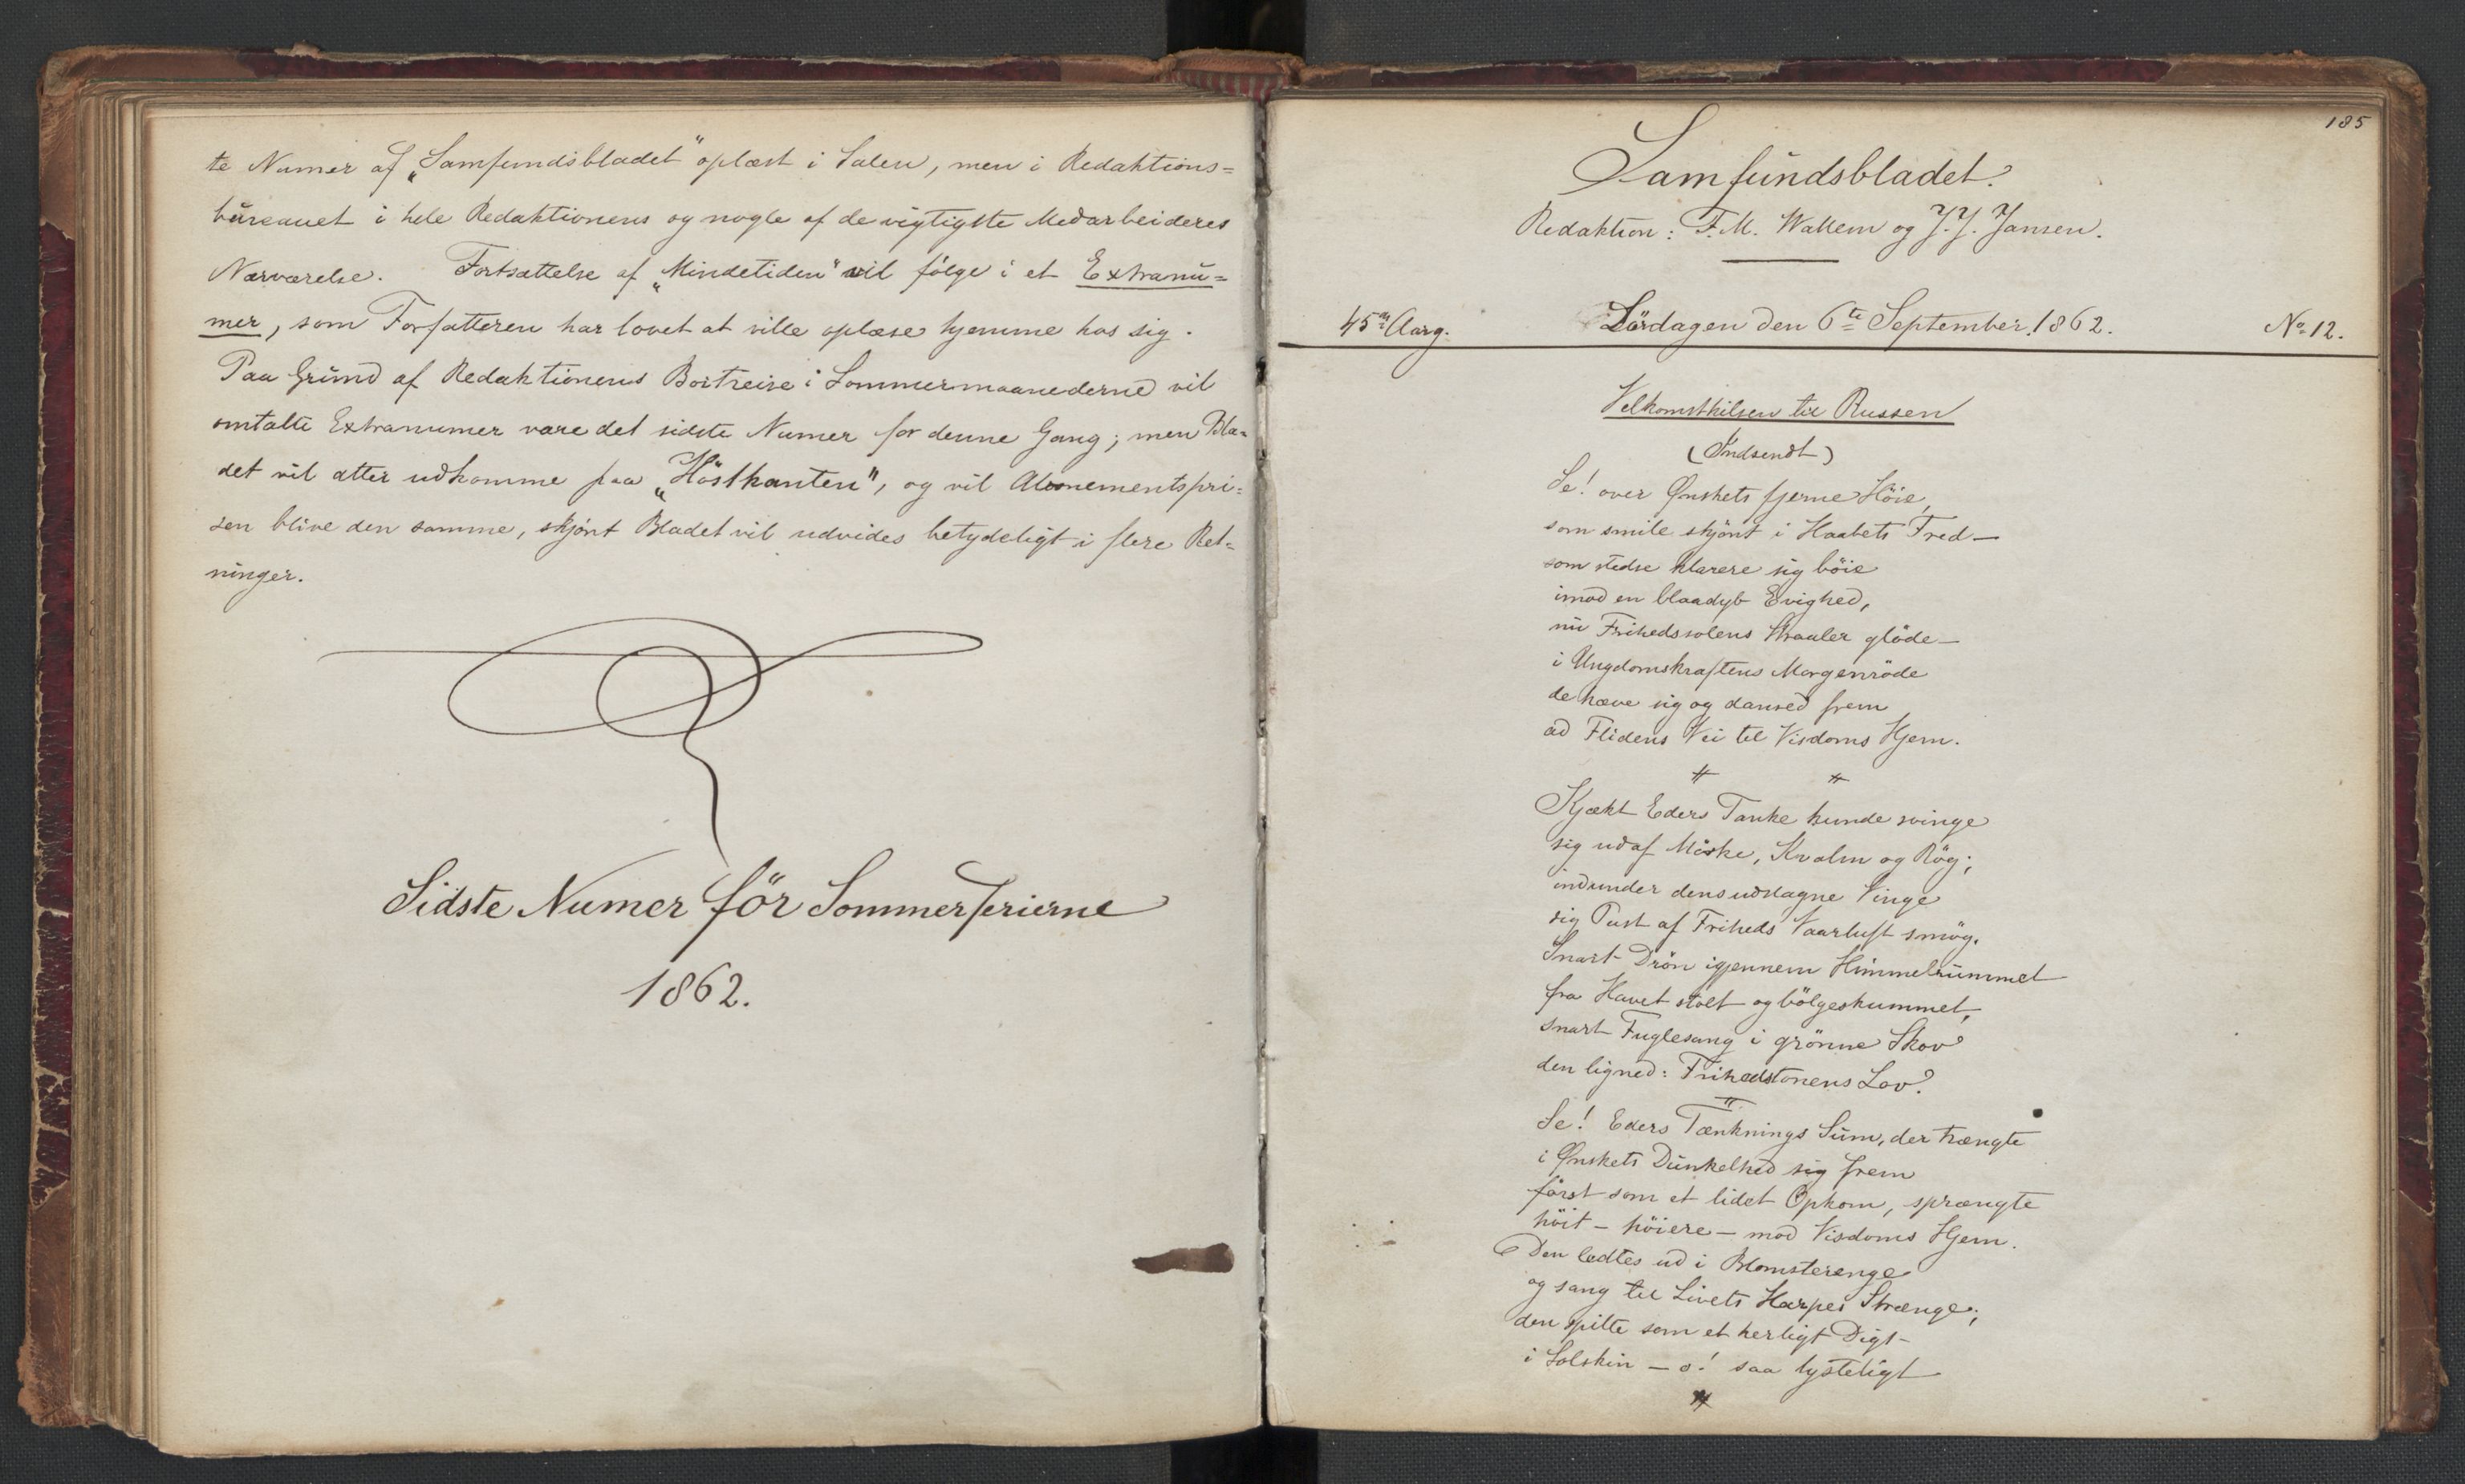 te Numer af „Samfundsbladet" oplæst i Salen, men i Redaktions=
büreauet i hele Redaktionens og nogle af de vigtigste Medarbeideres
Nærværelse. Fortsættelse af „Mindetiden" vil følge i et Extranu=
mer, som Forfatteren har lovet at ville oplæse hjemme hos sig.
Paa Grund af Redaktionens Bortreise i Sommermaanederne vil
omtalte Extranumer være det sidste Numer for denne Gang; men Bla=
det vil atter udkomme paa „Hösthanten", og vil Abonementspri=
sen blive den samme, skjönt Bladet vil udvides betydeligt i flere Ret=
ninger.
Sidste Numer för Sommerferierne
1862.
185
Samfundsbladet.
Redaktion: F. M. Wallem og J. J. Jansen.
45de Aarg. Lördagen den 6te September 1862. No 12.
Velkomsthilsen til Russen
(Indsendt)
Se! over Ønskets fjerne Höie,
som smile skjönt i Haabets Fred—
som stedse klarere sig böie
imod en blaadyb Evighed,
nu Frihedssolens Straaler glöde—
i Ungdomskraftens Morgenröde
de hæve sig og dansed frem
ad Flidens Vei til Visdoms Hjem.
Kjækt Eders Tanke kunde svinge
sig ud af Mörke, Kvalm og Rög;
indunder dens udslagne Vinge
sig Pust af Friheds Vaarluft smög.
Snart Drön igjennem Himmelrummet
fra Havet stolt og bölgeskummet,
snart Fuglesang i grönne Skov
den ligned: Frihedstonens Lov.
Se! Eders Tænknings Sum, der trængte
i Ønskets Dunkelhed sig frem
först som et lidet Opkom, sprængte
höit — höiere — mod Visdoms Hjem.
Den ledtes ud i Blomsterenge
og sang til Livets Harpes Strænge;
den spilte som et herligt Digt—
i Solskin — o! saa lysteligt